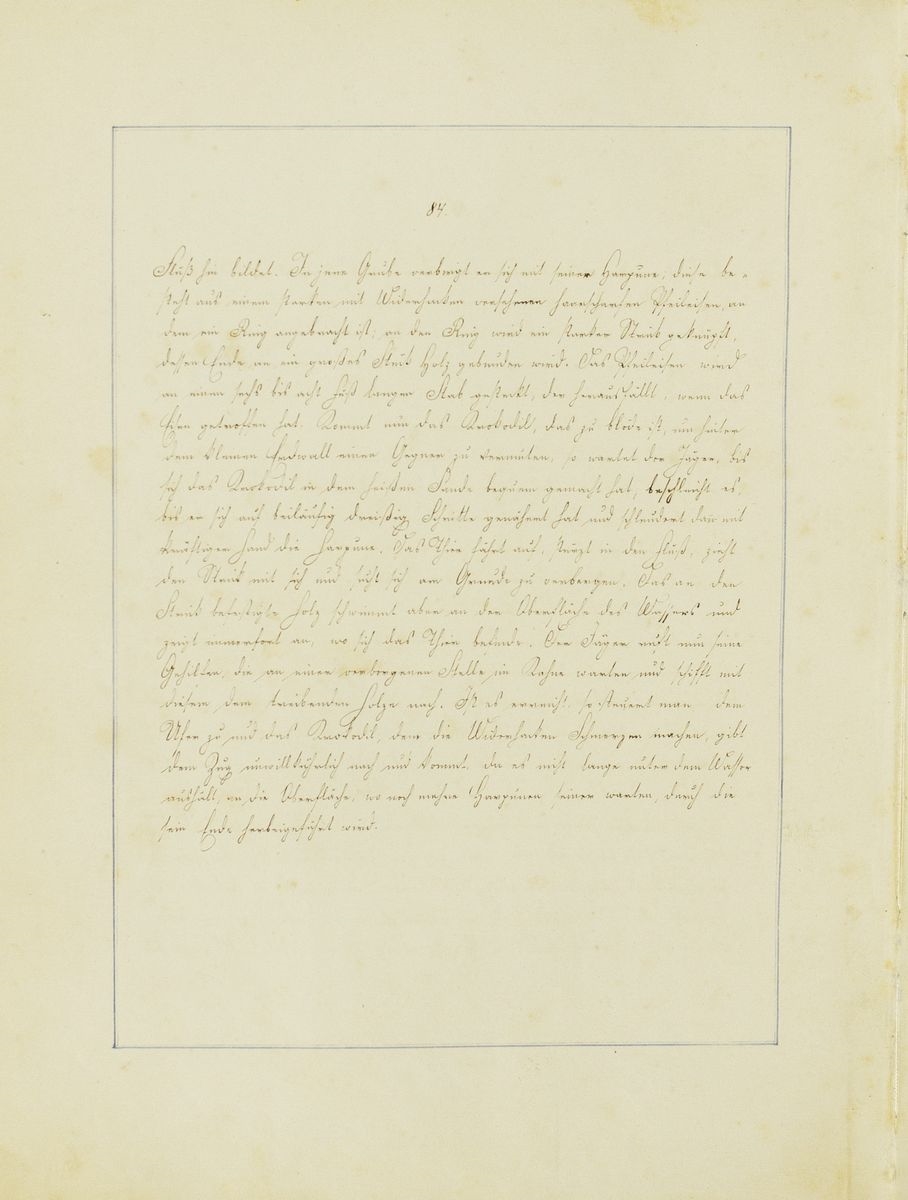 84.
Fluß hin bildet. In jene Grube verbirgt er sich mit seiner Harpune; diese be-
steht aus einem starken mit Widerhaken versehenen haarscharfen Pfeileisen, an
dem ein Ring angebracht ist; an den Ring wird ein starker Strick geknüpft,
dessen Ende an ein großes Stück Holz gebunden wird. Das Pfeileisen wird
an einen sechs bis acht Fuß langen Stab gesteckt, der herausfällt, wenn das
Eisen getroffen hat. Kommt nun das Krokodil, das zu blöde ist, um hinter
dem kleinen Erdwall einen Gegner zu vermuten, so wartet der Jäger, bis
sich das Krokodil in dem heißen Sande bequem gemacht hat, beschleicht es,
bis er sich auf beiläufig dreißig Schritte genähert hat und schleudert dann mit
kräftiger Hand die Harpune. Das Thier fährt auf, stürzt in den Fluß, zieht
den Strick mit sich und sucht sich am Grunde zu verbergen. Das an den
Strick befestigte Holz schwimmt aber an der Oberfläche des Wassers und
zeigt immerfort an, wo sich das Thier befindet. Der Jäger ruft nun seine
Gehilfen, die an einer verborgenen Stelle im Kahne warten und schifft mit
diesem dem treibenden Holze nach. Ist es erreicht, so steuert man dem
Ufer zu und das Krokodil, dem die Widerhaken Schmerzen machen, gibt
dem Zug unwillkührlich nach und kommt, da es nicht lange unter dem Wasser
aushält, an die Oberfläche, wo noch mehre Harpunen seiner warten, durch die
sein Ende herbeigeführt wird.